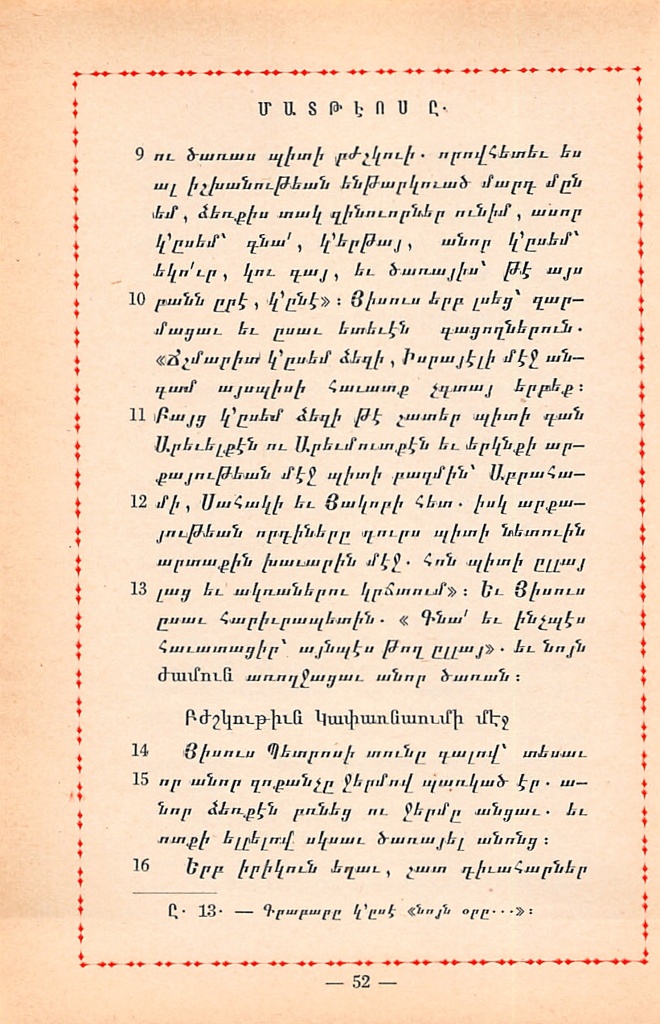 ՄԱՏԹԷՈՍ Ը․
9 ու ծառաս պիտի բժշկուի․ որովհետեւ ես
ալ իշխանութեան ենթարկուած մարդ մըն
եմ, ձեռքիս տակ զինուորներ ունիմ, ասոր
կ՚ըսեմ՝ գնա՛, կ՚երթայ, անոր կ՚ըսեմ՝
եկո՛ւր, կու գայ, եւ ծառայիս՝ թէ այս
10 բանն ըրէ, կ՚ընէ»։ Յիսուս երբ լսեց՝ զար—
մացաւ եւ ըսաւ ետեւէն գացողներուն․
«Ճշմարիտ կ՚ըսեմ ձեզի, Իսրայէլի մէջ ան—
գամ այսպիսի հաւատք չգտայ երբեք։
11 Բայց կ՚ըսեմ ձեզի թէ շատեր պիտի գան
Արեւելքէն ու Արեւմուտքէն եւ երկնքի ար—
քայութեան մէջ պիտի բազմին՝ Աբրահա—
12 մի, Սահակի եւ Յակոբի հետ․ իսկ արքա—
յութեան որդիները դուրս պիտի նետուին
արտաքին խաւարին մէջ․ հոն պիտի ըլլայ
13 լաց եւ ակռաներու կրճտում»։ Եւ Յիսուս
ըսաւ հարիւրապետին․ « Գնա՛ եւ ինչպէս
հաւատացիր՝ այնպէս թող ըլլայ»․ եւ նոյն
ժամուն առողջացաւ անոր ծառան։
Բժշկութիւն Կափառնաումի մէջ
14 Յիսուս Պետրոսի տունը գալով՝ տեսաւ
15 որ անոր զոքանչը ջերմով պառկած էր․ ա—
նոր ձեռքէն բռնեց ու ջերմը անցաւ․ եւ
ոտքի ելլելով սկսաւ ծառայել անոնց։
16 Երբ իրիկուն եղաւ, շատ դիւահարներ
Ը․ 13․ — Գրաբարը կ՚ըսէ «նոյն օրը․․․»։
— 52 —